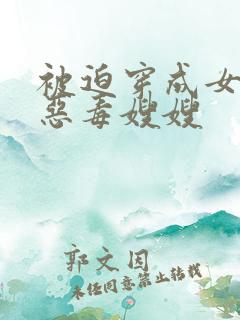 被迫穿成女
恶毒嫂嫂
郭文因
未经同意禁止转载